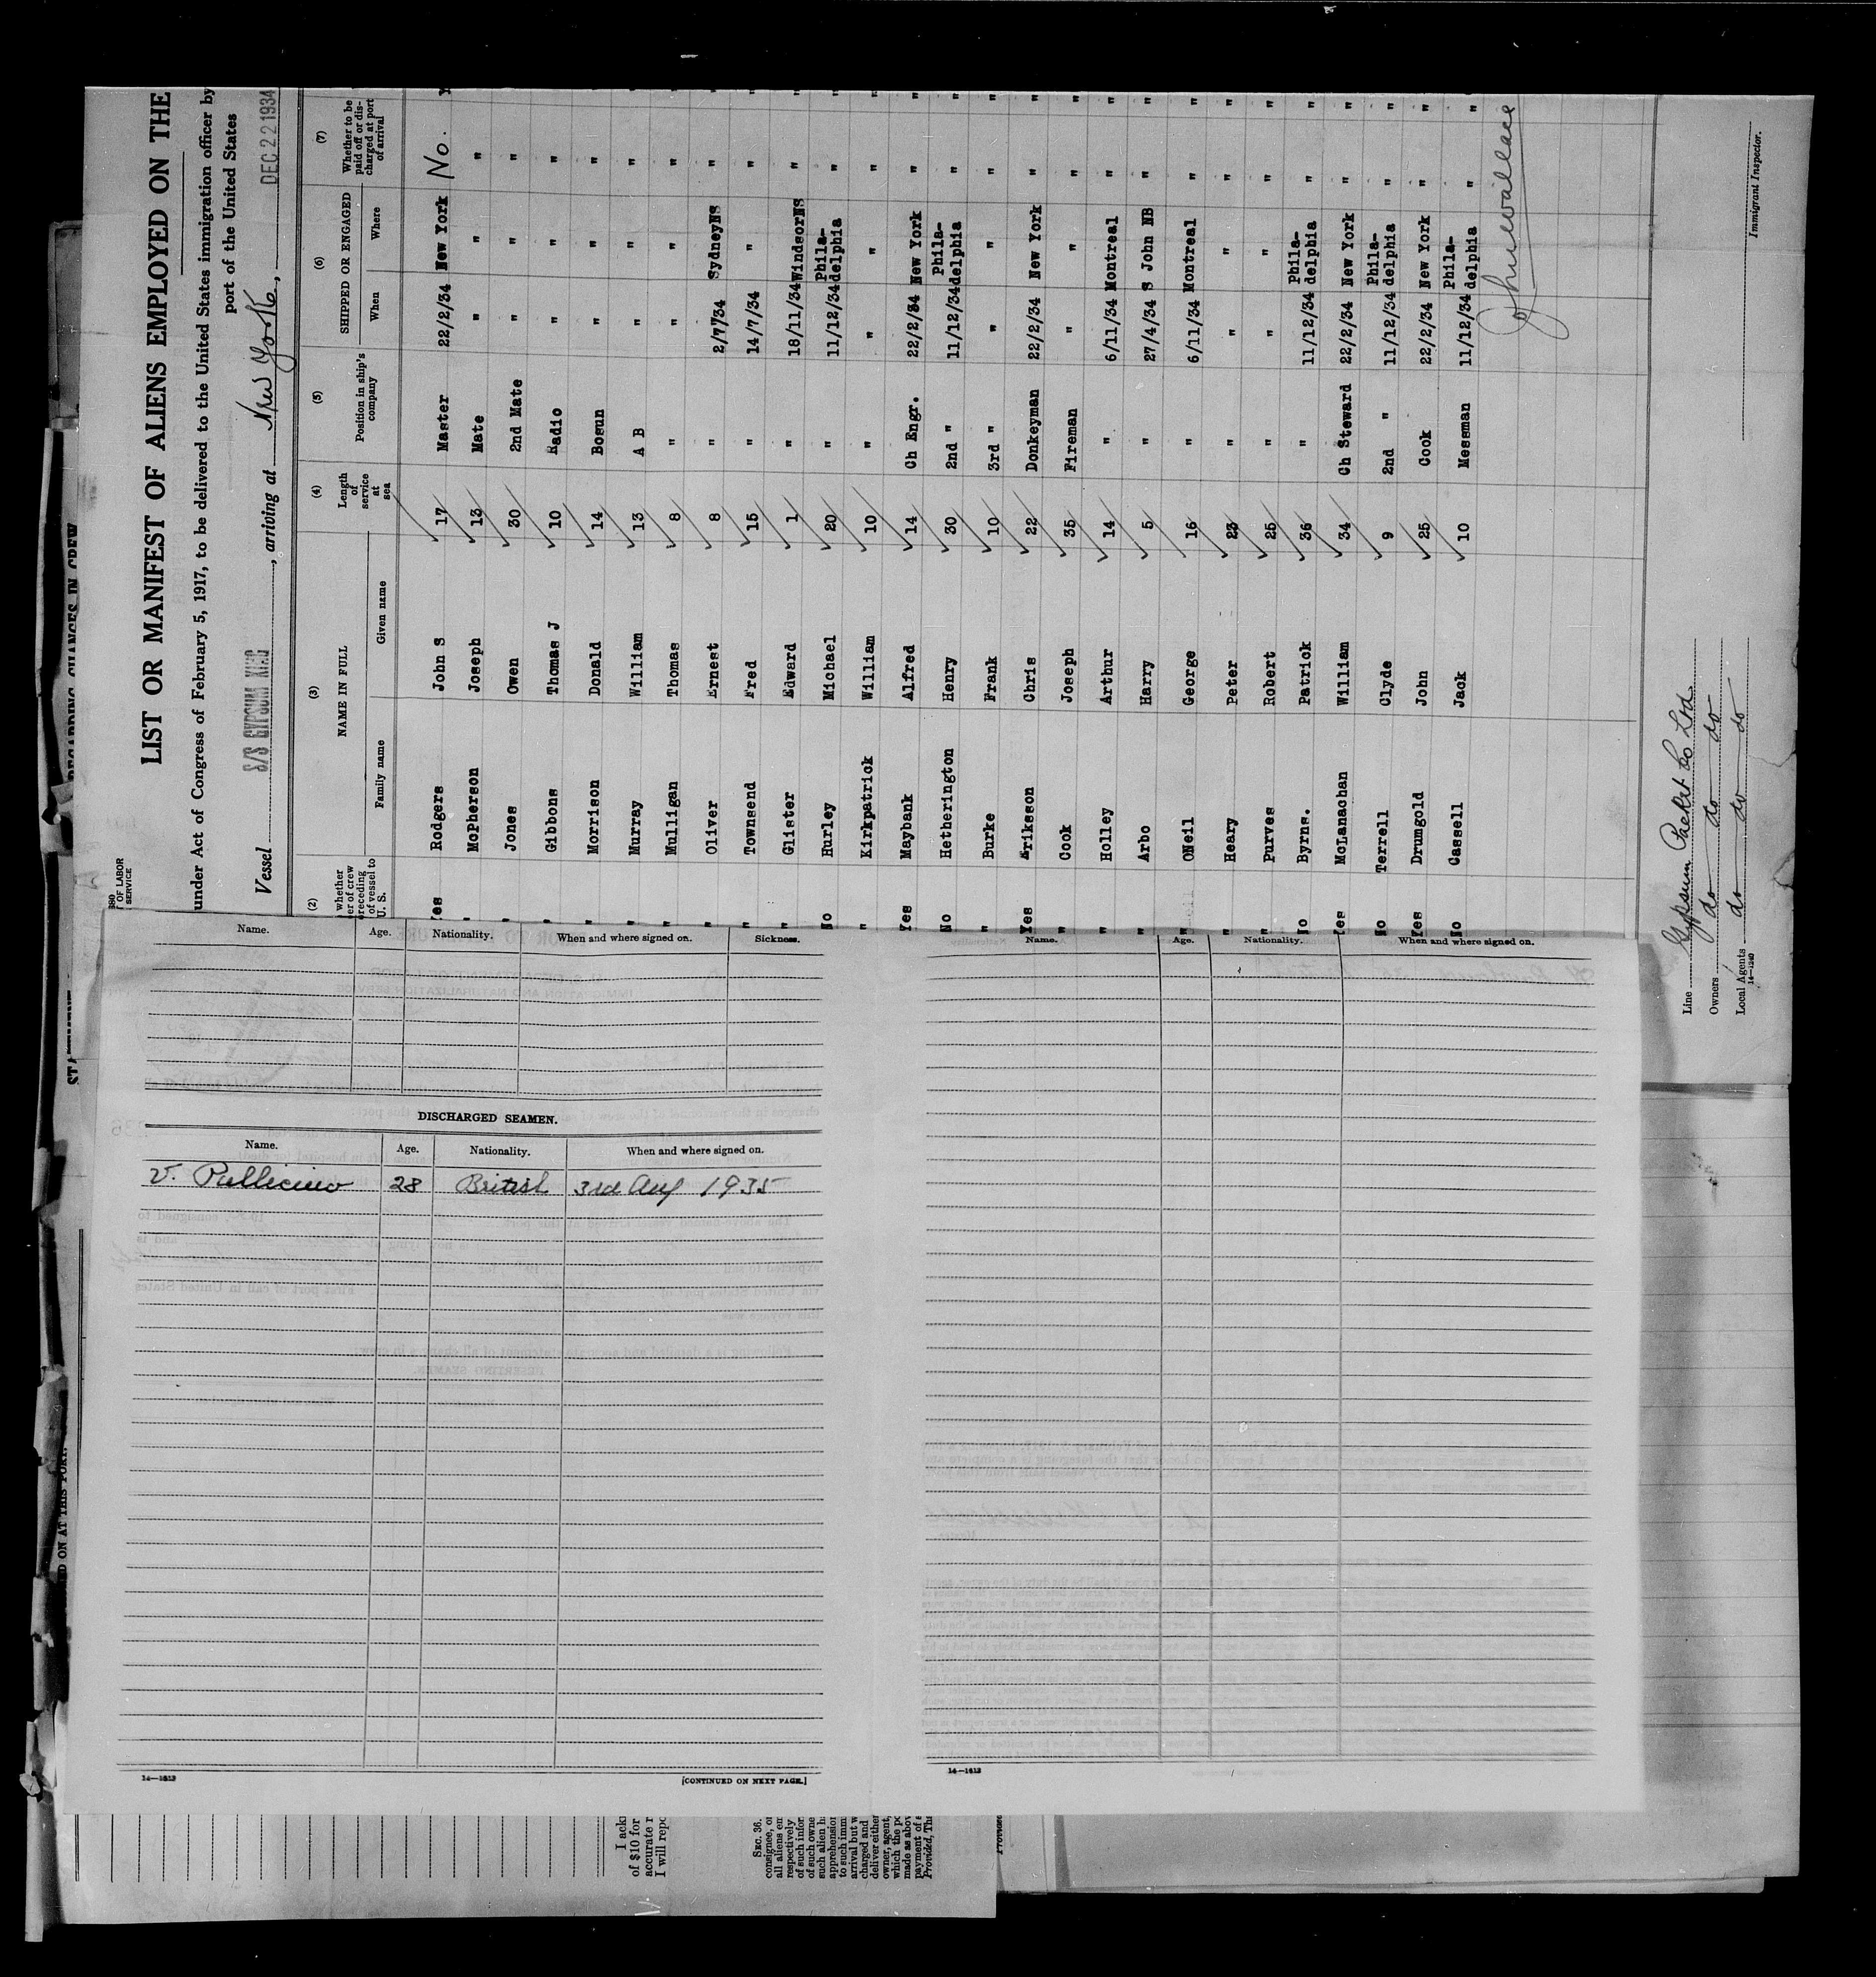 LIST OR MANIFEST OF ALIENS EMPLOYED ON THE
under Act of Congress of February 5, 1917, to be delivered to the United States immigration officer by
port of the United States
Vessel S/S GYPSUM KING, arriving at New York, DEC 22 1934
OF LABOR
SERVICE
(2) (3) (4) (5) (6) (7)
whether
er of crew
preceding
of vessel to
U. S.
NAME IN FULL
Family name Given name
Length of service at sea
Position in ship's company
SHIPPED OR ENGAGED
When Where
Whether to be paid off or discharged at port of arrival
Yes Rodgers John S 17 Master 22/2/34 New York No.
" McPherson Joseph 13 Mate " " "
" Jones Owen 30 2nd Mate " " "
" Gibbons Thomas J 10 Radio " " "
" Morrison Donald 14 Bosun " " "
" Murray William 13 A B " " "
" Mulligan Thomas 8 " " " "
" Oliver Ernest 8 " 2/7/34 SydneyNS "
" Townsend Fred 15 " 14/7/34 " "
" Glister Edward 1 " 18/11/34 WindsorNS "
No Hurley Michael 20 " 11/12/34 Phila-delphia "
" Kirkpatrick William 10 " " " "
Yes Maybank Alfred 14 Ch Engr. 22/2/34 New York "
No Hetherington Henry 30 2nd " 11/12/34 Phila-delphia "
" Burke Frank 10 3rd " " " "
Yes Eriksson Chris 22 Donkeyman 22/2/34 New York "
" Cook Joseph 35 Fireman " " "
" Holley Arthur 14 " 6/11/34 Montreal "
" Arbo Harry 5 " 27/4/34 S John NB "
" ONeil George 16 " 6/11/34 Montreal "
" Heary Peter 23 " " " "
" Purves Robert 25 " " " "
No Byrns. Patrick 36 " 11/12/34 Phila-delphia "
Yes McLanachan William 34 Ch Steward 22/2/34 New York "
No Terrell Clyde 9 2nd " 11/12/34 Phila-delphia "
Yes Drumgold John 25 Cook 22/2/34 New York "
No Cassell Jack 10 Messman 11/12/34 Phila-delphia "
John Wallace
Immigrant Inspector.
Line Gypsum Packet Co Ltd.
Owners do do do
Local Agents do do do
14—1240
REGARDING CHANGES IN CREW
Name. Age. Nationality. When and where signed on. Sickness.
DISCHARGED SEAMEN.
Name. Age. Nationality. When and where signed on.
V. Pullicino 28 British 3rd Aug 1935
14—1613
[CONTINUED ON NEXT PAGE.]
Name. Age. Nationality. When and where signed on.
14—1613
ED ON AT THIS PORT.
I ack
of $10 for
accurate r
I will repo
SEC. 36.
consignee, o
all aliens en
respectively
of such infor
of such owne
such alien h
apprehension
to such immi
arrival but w
charged and
deliver either
owner, agent,
which the po
made as above
payment of s
Provided, Th